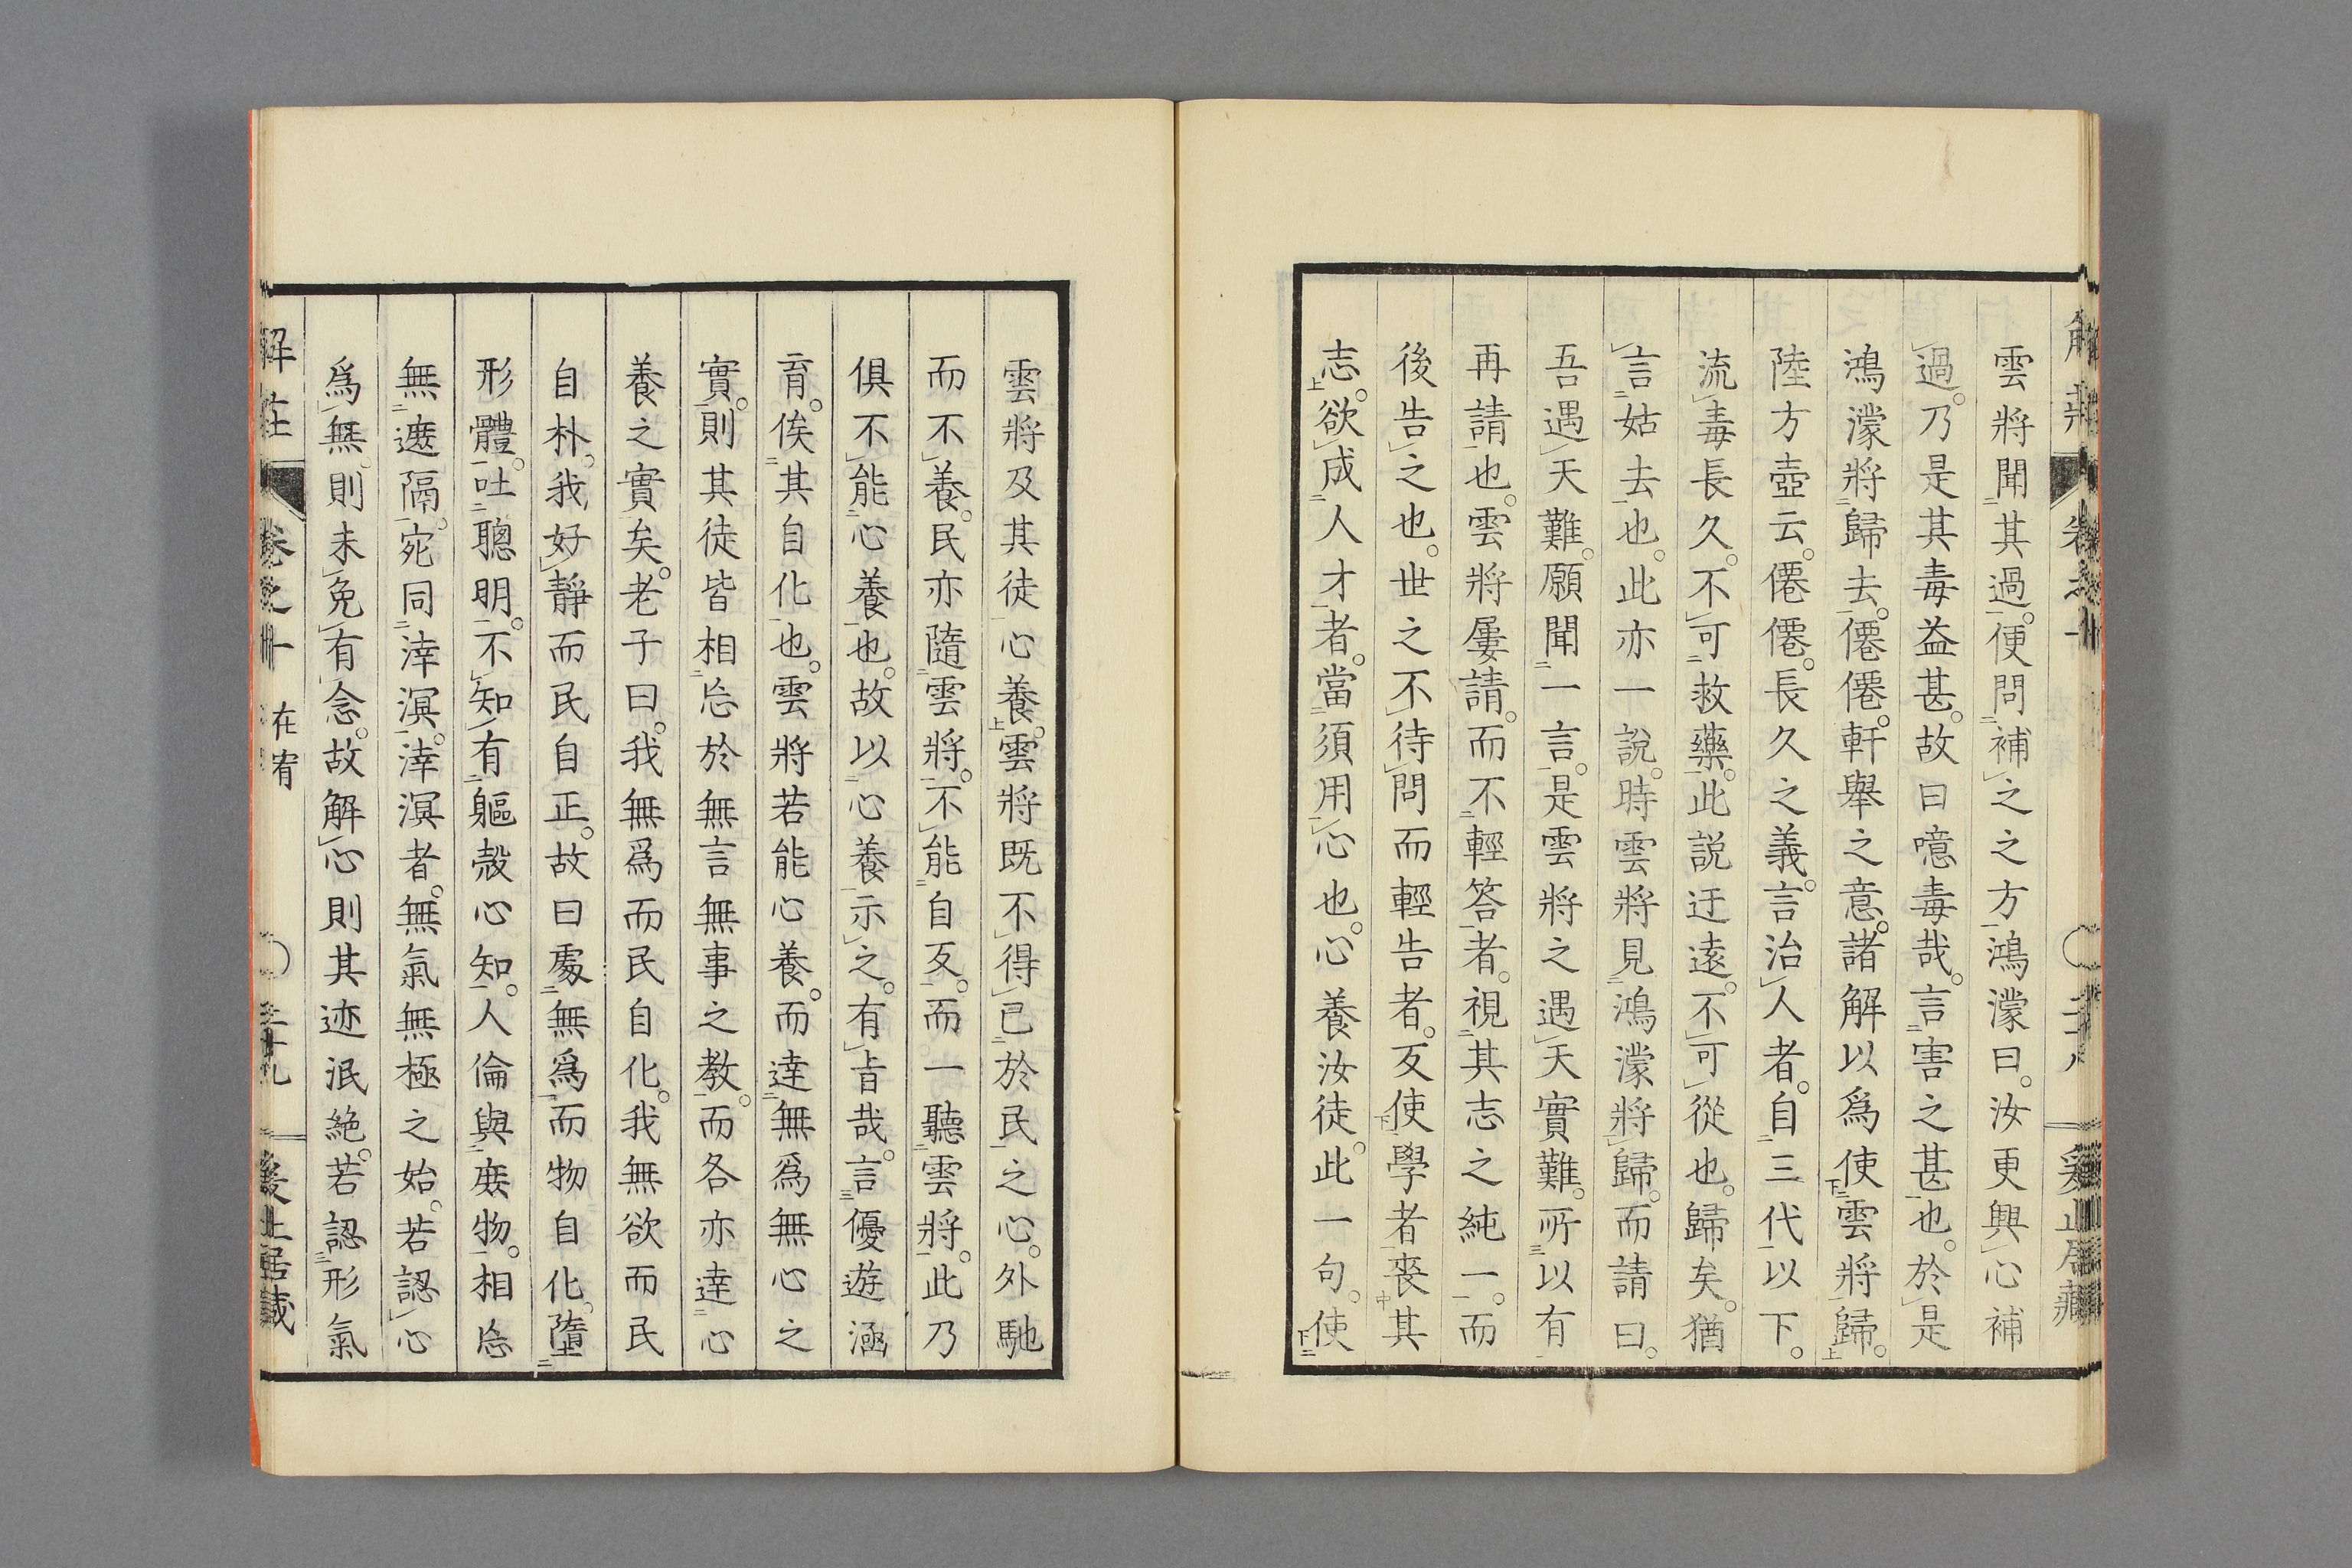 雲將聞其過。便問補之之方鴻濛曰。汝更興心補
過。乃是其毒益甚。故曰噫毒哉。言害之甚也。於是
鴻濛將歸去。僊僊。軒舉之意。諸解以爲使雲將歸。
陸方壺云。僊僊。長久之義。言治人者。自三代以下。
流毒長久。不可救藥。此說迂遠。不可從也。歸矣。猶
言姑去也。此亦一說。時雲將見鴻濛將歸。而請曰。
吾遇天難。願聞一言。是雲將之遇天實難。所以有
再請也。雲將屢請。而不輕答者。視其志之純一。而
後告之也。世之不待問而輕告者。反使學者喪其
志。欲成人才者。當須用心也。心養汝徒。此一句。使
雲將及其徒心養。雲將既不得已於民之心。外馳
而不養。民亦隨雲將。不能自反。而一聽雲將。此乃
俱不能心養也。故以心養示之。有旨哉。言優遊涵
育。俟其自化也。雲將若能心養。而達無爲無心之
實。則其徒皆相忘於無言無事之教。而各亦達心
養之實矣。老子曰。我無爲而民自化。我無欲而民
自朴。我好靜而民自正。故曰處無爲而物自化。墮
形體。吐聰明。不知有軀殼心知。人倫與庶物。相忘
無遮隔。宛同涬溟。涬溟者。無氣無極之始。若認心
爲無則未免有念。故解心則其迹泯絕。若認形氣
解莊 卷之十 在宥 三十九